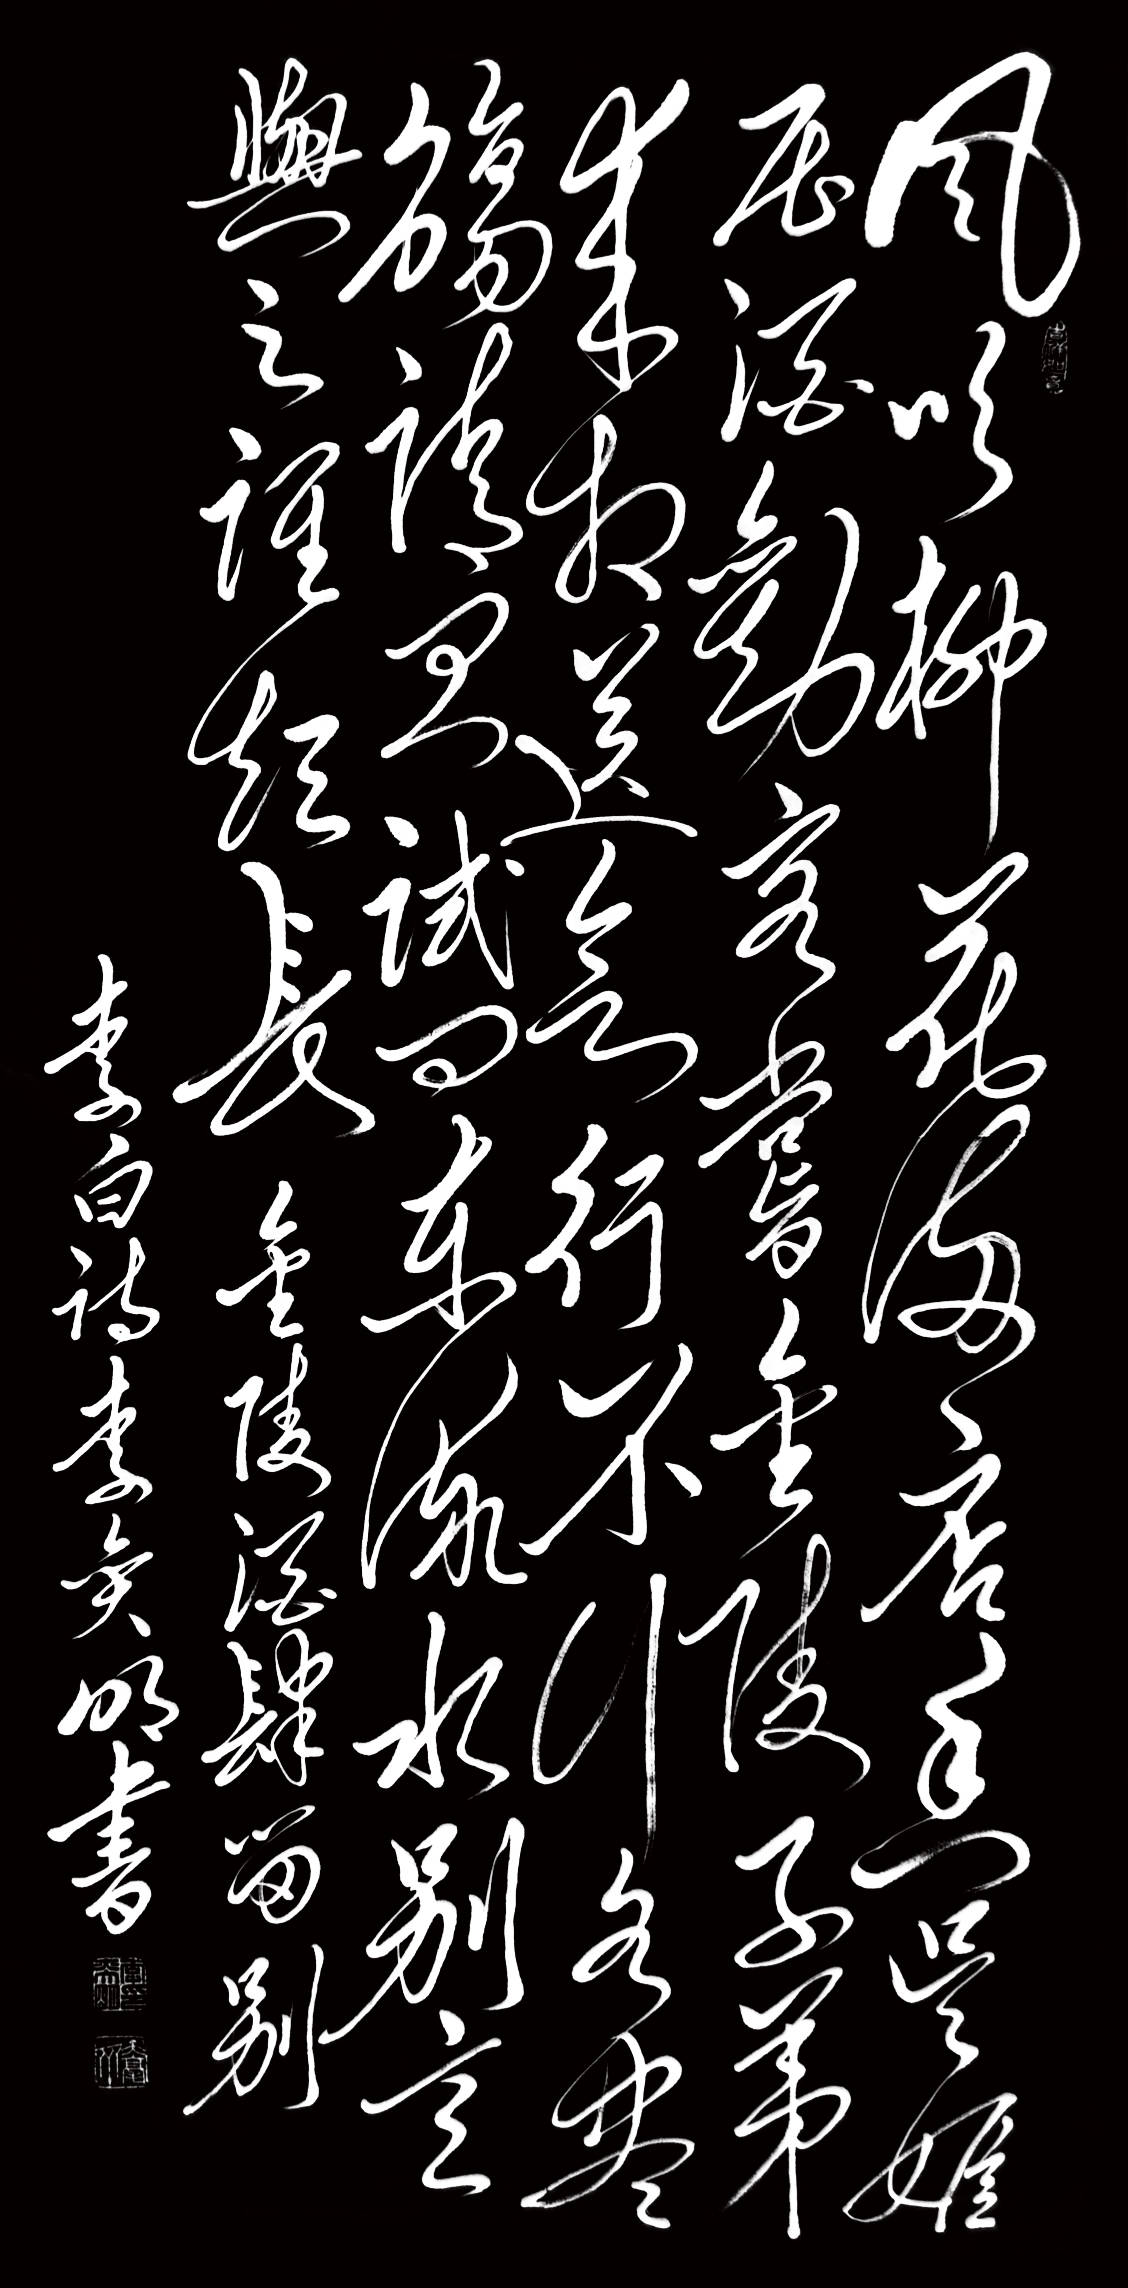 風吹柳花滿店香吳姬
壓酒勸客嘗金陵子弟
來相送欲行不行各盡
觴請君試問東流水別意
與之誰短長 金陵酒肆留別
李白詩李明書